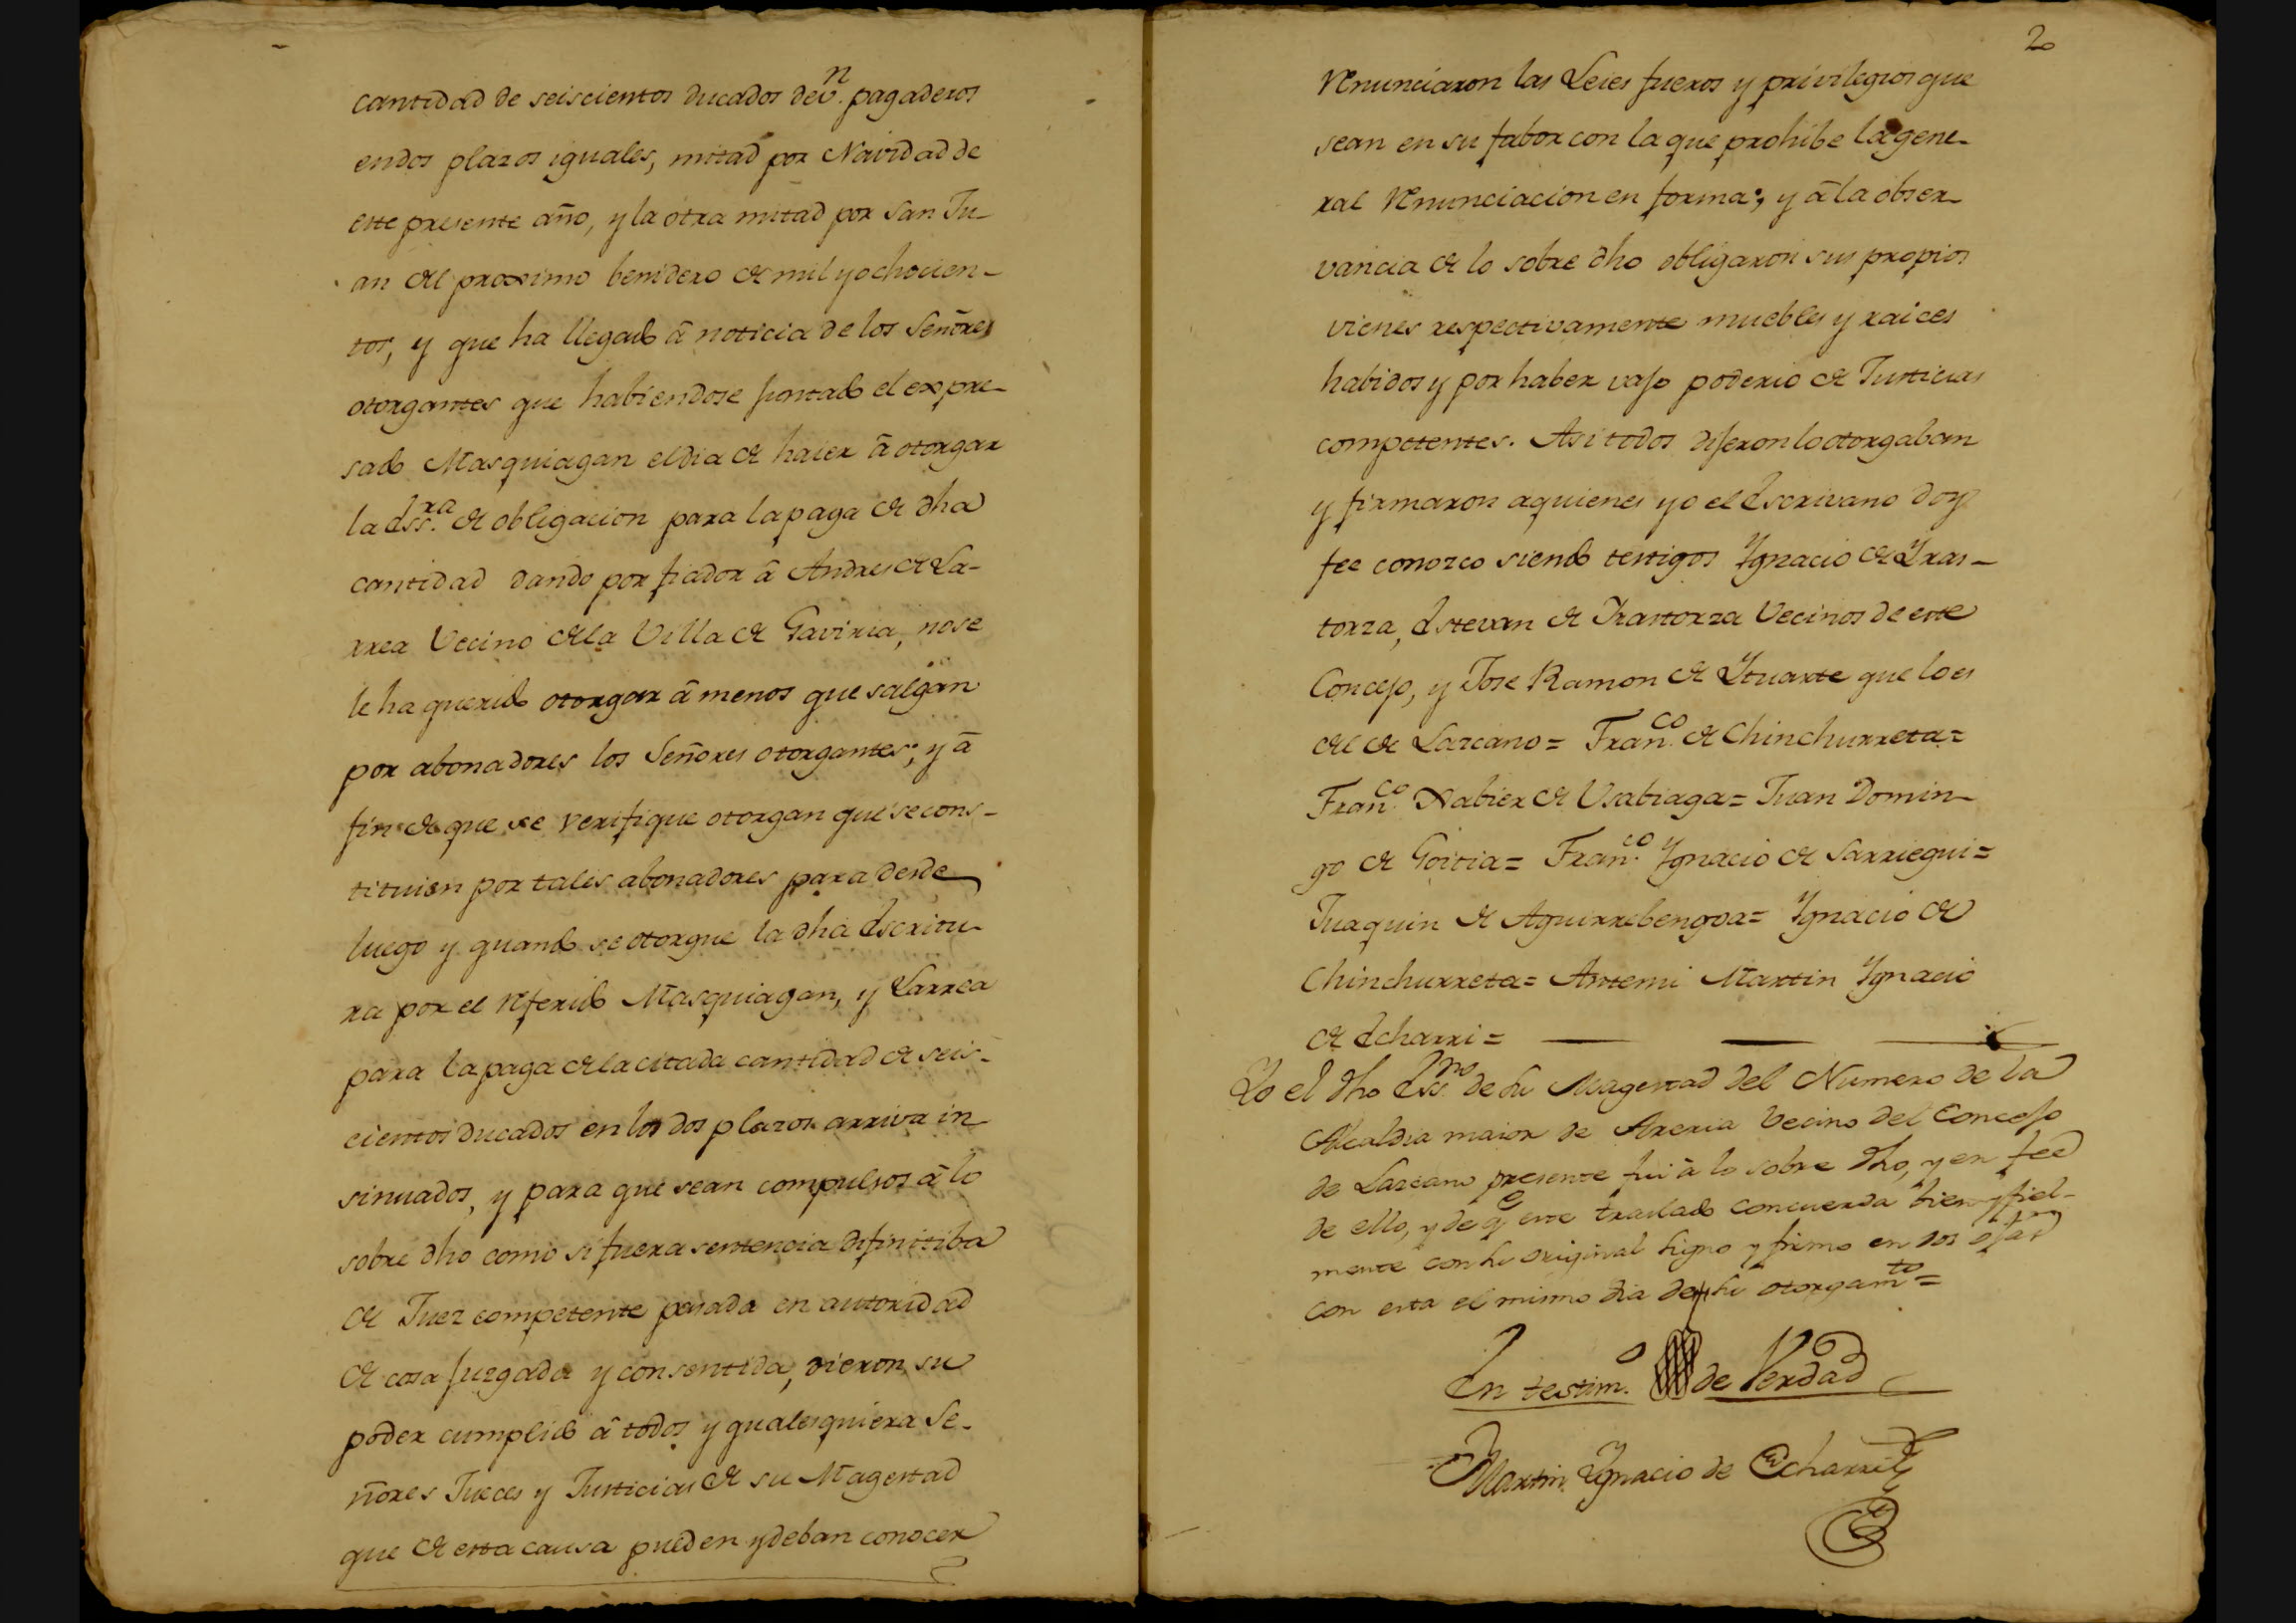 cantidad de seiscientos ducados de v.n pagaderos
en dos plazos iguales, mitad por Navidad de
este presente año, y la otra mitad por San Ju-
an del proximo benidero de mil y ochocien-
tos, y que ha llegado â noticia de los Señores
otorgantes que habiendose juntado el expre-
sado Masquiagan el dia de haier â otorgar
la Ess.ra de obligacion para la paga de dha
cantidad dando por fiador â Andres de La-
rrea Vecino de la Villa de Gaviria, no se
le ha querido otorgar â menos que salgan
por abonadores los Señores otorgantes; y â
fin de que se verifique otorgan que se cons-
tituien por tales abonadores para desde
luego y quando se otorgue la dha Escritu-
ra por el referido Masquiagan, y Larrea
para la paga de la citada cantidad de seis-
cientos ducados en los dos plazos arriva in-
sinuados, y para que sean compulsos â lo
sobre dho como si fuera sentencia difinitiba
de Juez competente pasada en autoridad
de cosa juzgada y consentida, dieron su
poder cumplido â todos y qualesquiera Se-
ñores Jueces y Justicias de su Magestad
que de esta causa pueden y deban conocer
2
renunciaron las Leies fueros y privilegios que
sean en su fabor con la que prohibe la gene-
ral renunciacion en forma; y â la obser-
vancia de lo sobre dho obligaron sus propios
vienes respectivamente muebles y raices
habidos y por haber vajo poderio de Justicias
competentes. Asi todos dijeron lo otorgaban
y firmaron a quienes yo el Escrivano doy
fee conozco siendo testigos Ygnacio de Yras-
torza, Estevan de Yrastorza Vecinos de este
Concejo, y Jose Ramon de Ytuarte que lo es
del de Lazcano = Fran.co de Chinchurreta =
Fran.co Xabier de Usabiaga = Juan Domin-
go de Goitia = Fran.co Ygnacio de Sarriegui =
Juaquin de Aguirrebengoa = Ygnacio de
Chinchurreta = Antemi Martin Ygnacio
de Echarri =
Yo el dho Ess.no de su Magestad del Numero de la
Alcaldia maior de Areria Vecino del Concejo
de Lazcano presente fui â lo sobre dho, y en fee
de ello, y de q.e este traslado concuerda bien y fiel-
mente con su original signo y firmo en dos ojas
con esta el mismo dia de su otorgam.to =
En testim.o de Verdad
Martin Ygnacio de Echarri